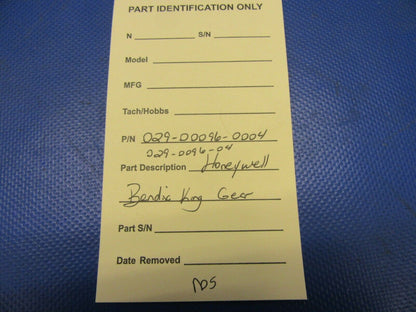 PART IDENTIFICATION ONLY
N ________ S/N ________
Model ________
MFG ________
Tach/Hobbs ________
P/N 029-00096-0004
029-0096-04
Part Description Honeywell
Bendix King Gear
Part S/N ________
Date Removed ________
NOS